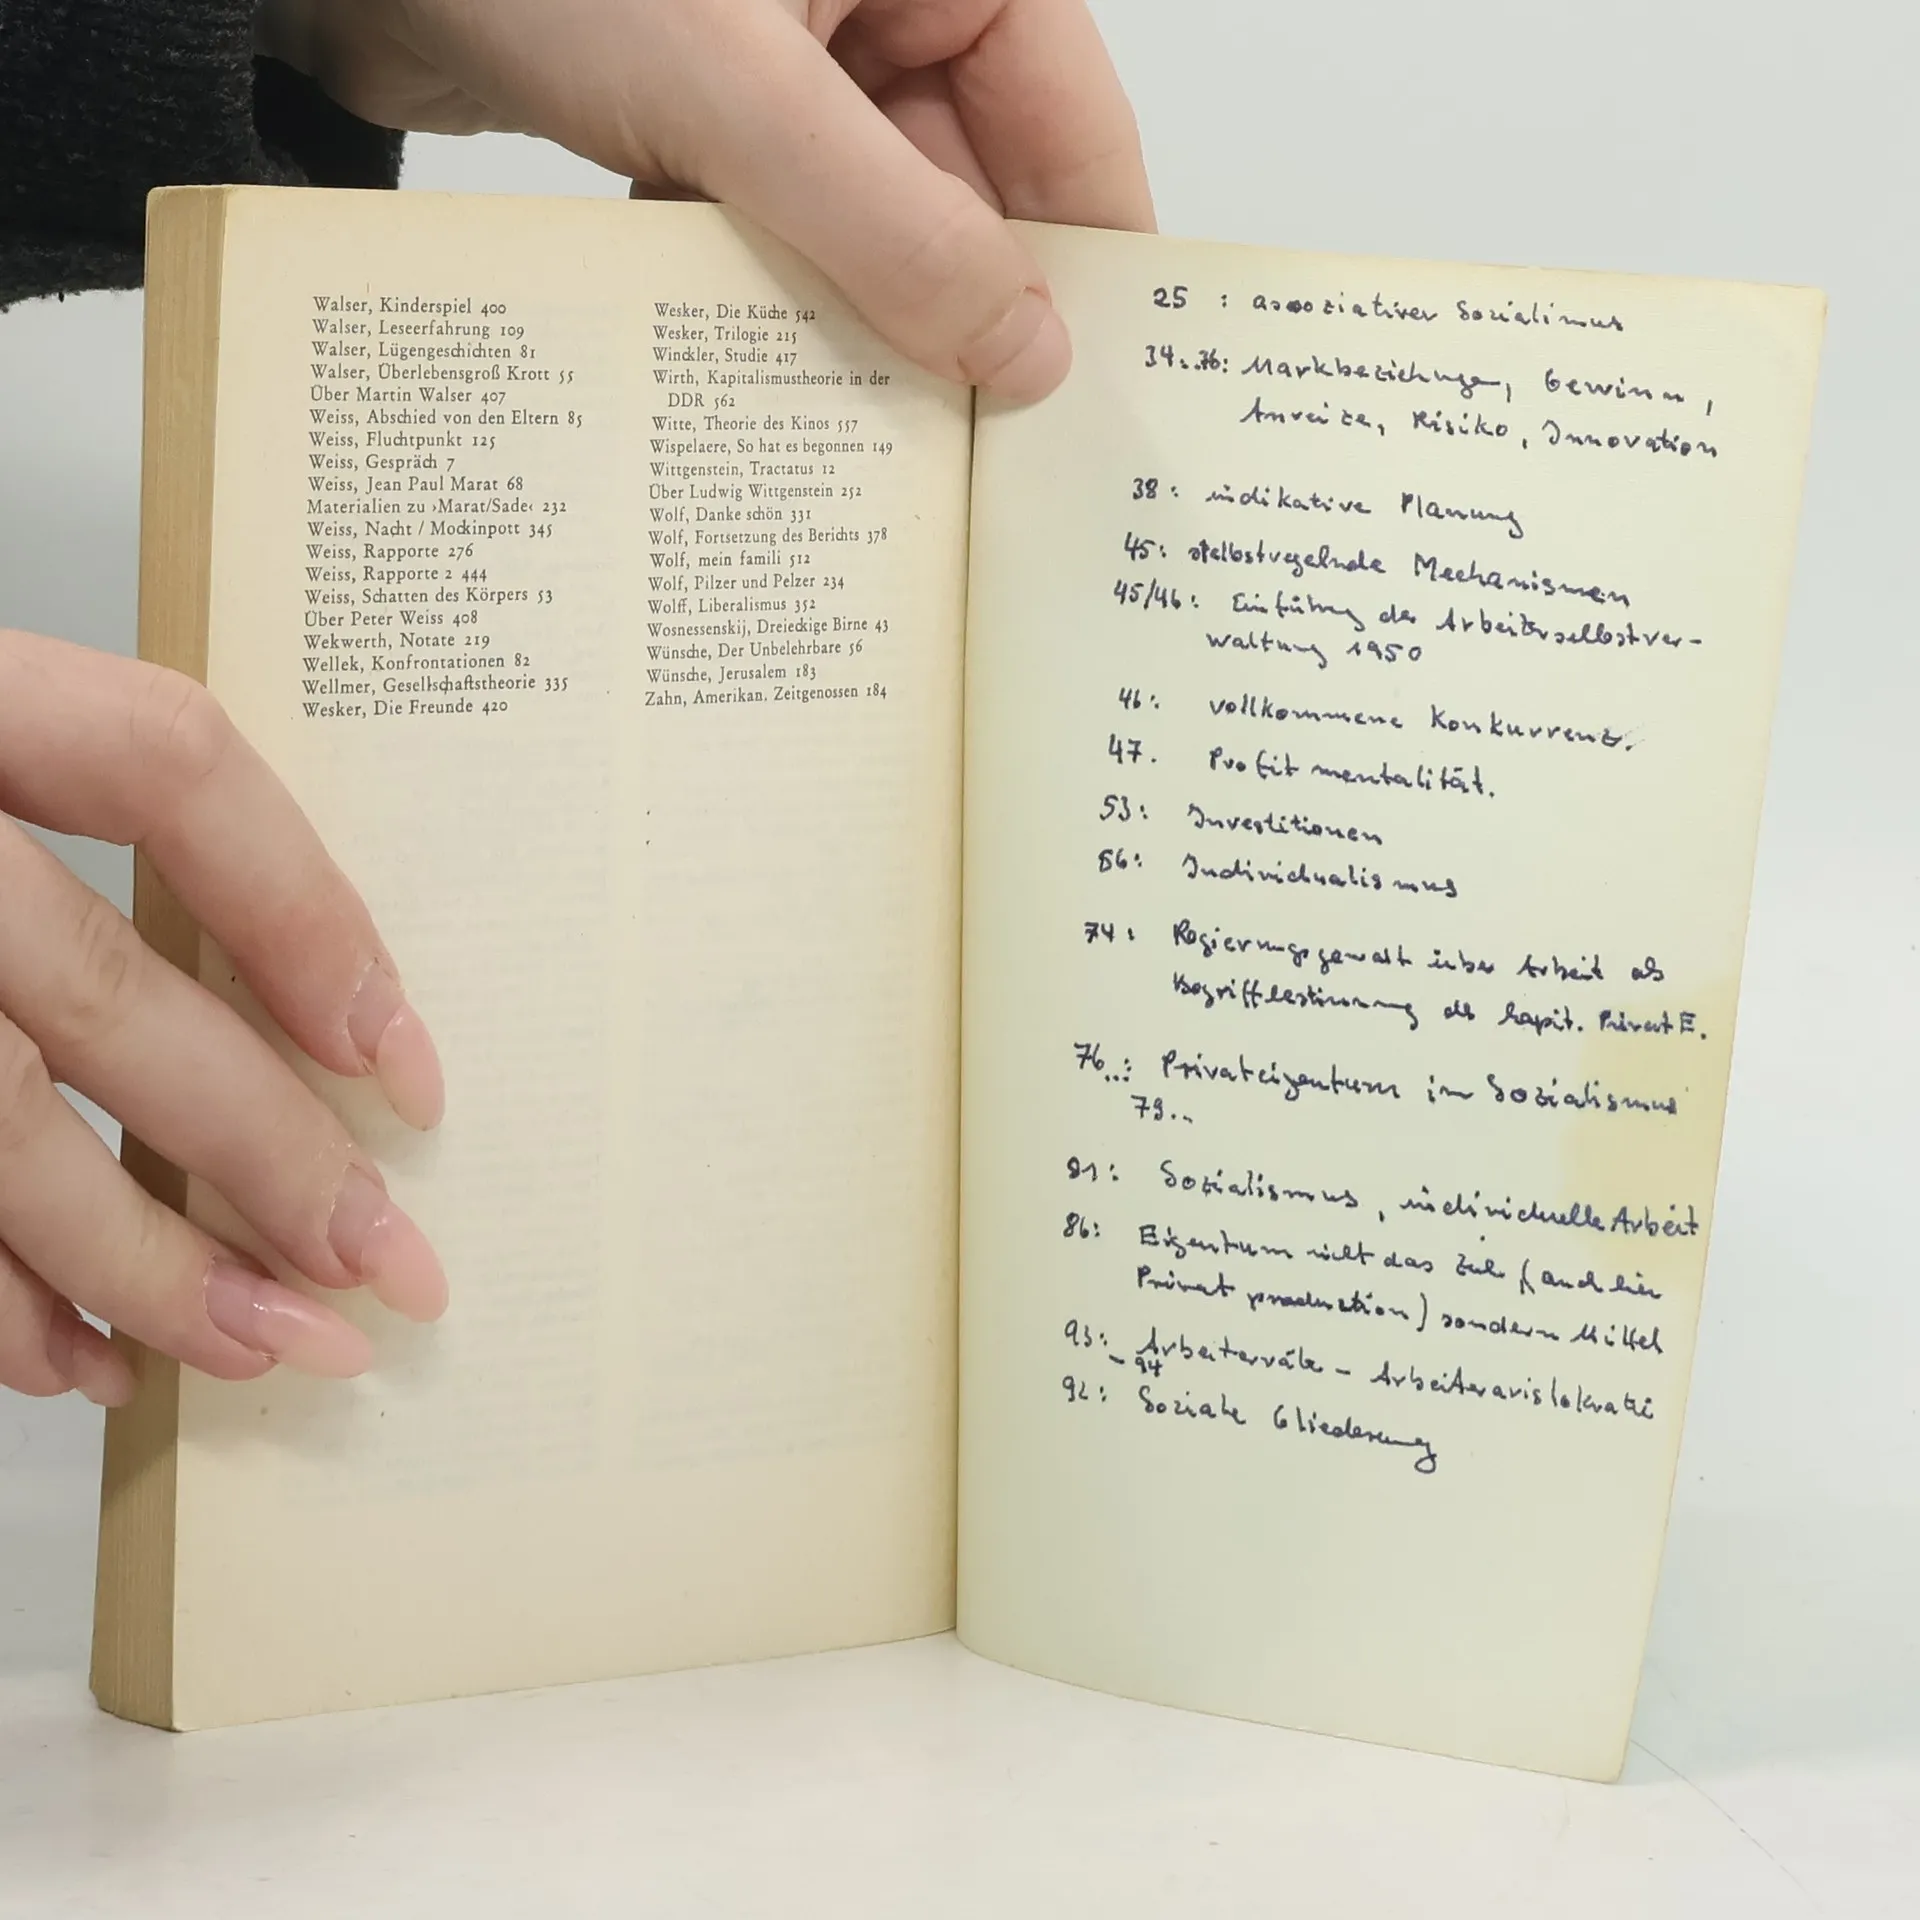 Walser, Kinderspiel 400
Walser, Leseerfahrung 109
Walser, Lügengeschichten 81
Walser, Überlebensgroß Krott 55
Über Martin Walser 407
Weiss, Abschied von den Eltern 85
Weiss, Fluchtpunkt 125
Weiss, Gespräch 7
Weiss, Jean Paul Marat 68
Materialien zu ›Marat/Sade‹ 232
Weiss, Nacht / Mockinpott 345
Weiss, Rapporte 276
Weiss, Rapporte 2 444
Weiss, Schatten des Körpers 53
Über Peter Weiss 408
Wekwerth, Notate 219
Wellek, Konfrontationen 82
Wellmer, Gesellschaftstheorie 335
Wesker, Die Freunde 420
Wesker, Die Küche 542
Wesker, Trilogie 215
Winckler, Studie 417
Wirth, Kapitalismustheorie in der
DDR 562
Witte, Theorie des Kinos 557
Wispelaere, So hat es begonnen 149
Wittgenstein, Tractatus 12
Über Ludwig Wittgenstein 252
Wolf, Danke schön 331
Wolf, Fortsetzung des Berichts 378
Wolf, mein famili 512
Wolf, Pilzer und Pelzer 234
Wolff, Liberalismus 352
Wosnessenskij, Dreieckige Birne 43
Wünsche, Der Unbelehrbare 56
Wünsche, Jerusalem 183
Zahn, Amerikan. Zeitgenossen 184
25 : assoziativer Sozialismus
34..36: Markbeziehungen, Gewinn,
Anreize, Risiko, Innovation
38: indikative Planung
45: selbstregelnde Mechanismen
45/46: Einführung der Arbeiterselbstver-
waltung 1950
46: vollkommene Konkurrenz.
47. Profitmentalität.
53: Investitionen
56: Individualismus
74: Regierungsgewalt über Arbeit als
Begriffbestimmung des kapit. PrivatE.
76..: Privateigentum im Sozialismus
79..
81: Sozialismus, individuelle Arbeit
86: Eigentum nicht das Ziel (auch hier
Privatproduktion) sondern Mittel
93: Arbeiterräte - Arbeiteraristokratie
- 94
92: Soziale Gliederung